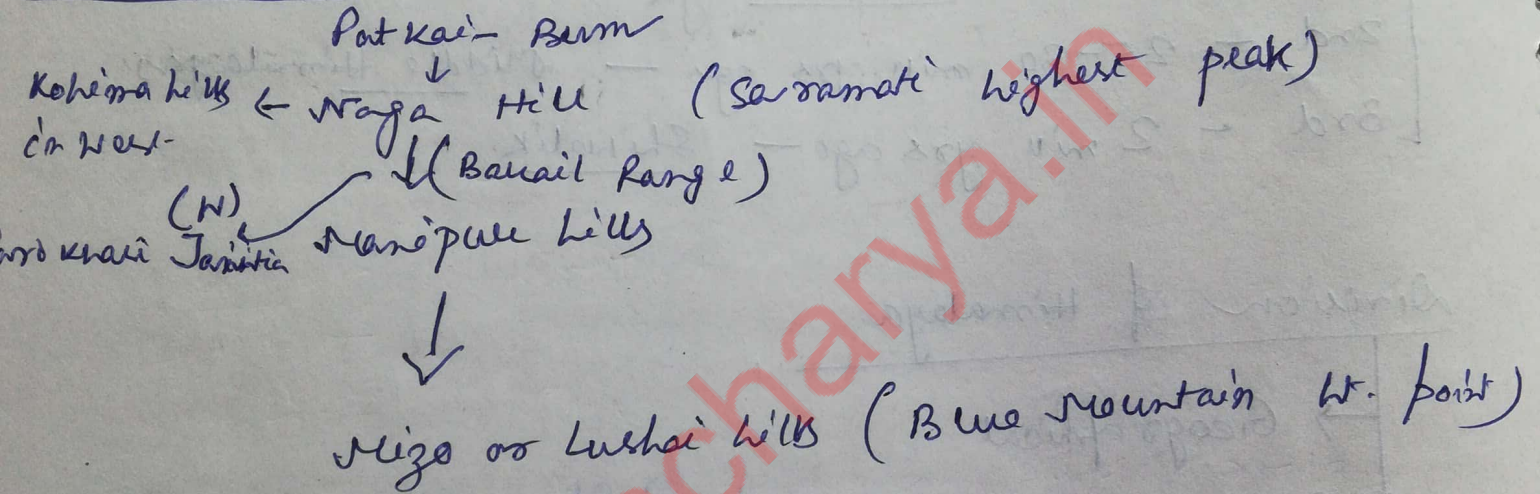 Patkai - Bum
↓
Kohima hills ← Naga Hill (Saramati highest peak)
in west
↓ (Barail Range)
(W)
Khasi Jaintia Manipur hills
↓
Mizo or Lushai hills (Blue Mountain ht. point)
charya.in